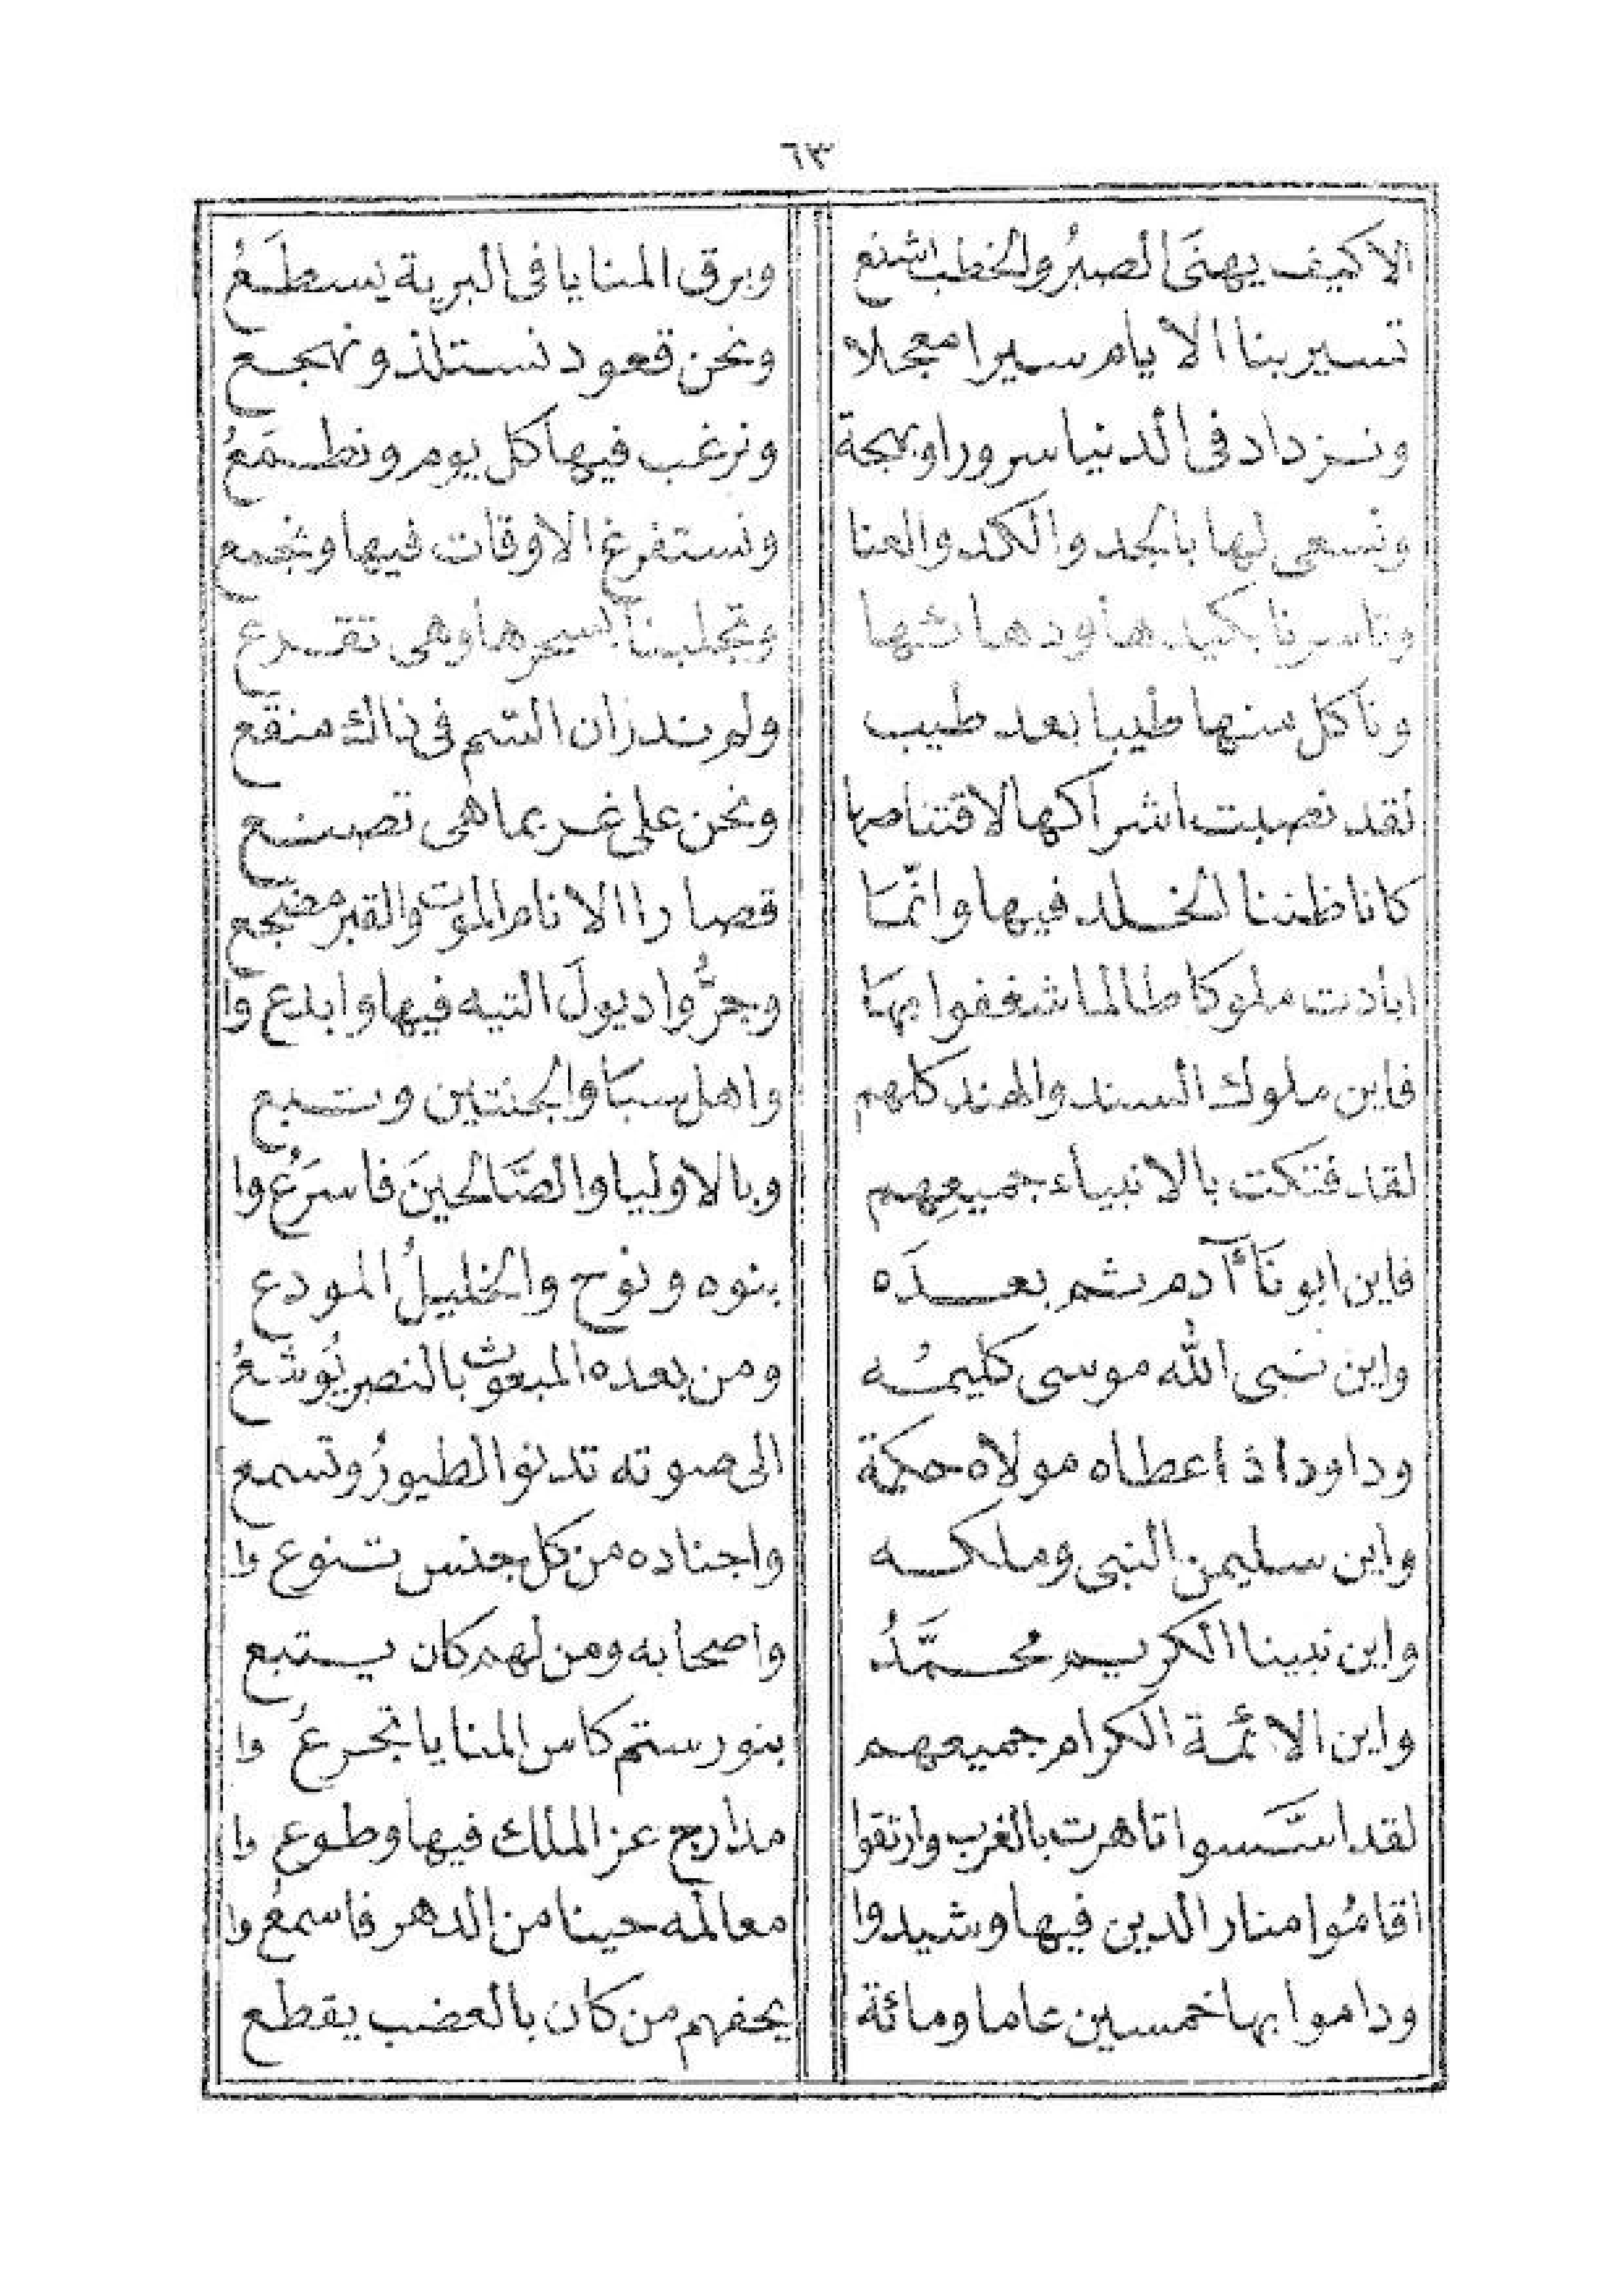 ٦٣
الا كيف يهنَى الصبرُ والخطب اشنع وبرق المنايا فى البرية يسطَعُ
تسير بنا الايام سيرا معجلا ونحن قعود نستلذ ونهجع
ونزداد فى الدنيا سرورا وبهجة ونرغب فيها كل يوم ونطمَعُ
ونسعى لها بالجد والكد والعنا ونستفرغ الاوقات فيها ونجمع
وتاسرنا بكيدها ودهائها وتجلبنا بسحرها وهى تقدع
وناكل منها طيبا بعد طيب ولم ندر ان السم فى ذاك منقع
لقد نصبت اشراكها لاقتناصها ونحن على غر بما هى تصنع
كانا ظننا الخلد فيها وانّمَا قصارا الانام الموت والقبر مضجع
ابادت ملوكا طالما شغفوا بهَا وجرُّوا ديولَ التيه فيها وابدعوا
فاين ملوك السند والهند كلهم واهل سبَا والجنتين وتبع
لقد فتكت بالانبياء جميعِهم وبالاوليا والصَّالحينَ فاسرَعُوا
فاين ابونَا آدم ثم بعدَه بنوه ونوح والخليلُ المودع
واين نبى الله موسى كليمُه ومن بعده المبعوث بالنصر يُوشَعُ
وداود اذ اعطاه مولاه حكمة الى صوته تدنو الطيورُ وتسمع
واين سليمن النبى وملكه واجناده من كل جنس تنوعوا
واين نبينا الكريم محمَّدُ واصحابه ومن لهم كان يستبع
واين الائمة الكرام جميعهم بنو رستم كاس المنايا تجرعُوا
لقد اسَّسوا تاهرت بالغرب وارتقوا مدارج عز الملك فيها وطوعوا
اقامُوا منار الدين فيها وشيدوا معالمه حينا من الدهر فاسمعُوا
وداموا بها خمسين عاما ومائة يحفهم من كان بالعضب يقطع